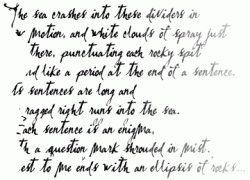 The sea crashes into these dividers in
Motion, and white clouds of spray just
there, punctuating each rocky spit
like a period at the end of a sentence.
Its sentences are long and
ragged right runs into the sea.
Each sentence is an enigma,
a question mark shrouded in mist.
to me ends with an ellipsis of rocks...